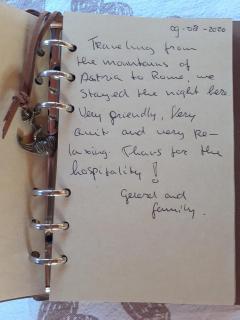 09-08-2020
Traveling from
the mountains of
Astria to Rome, we
stayed the night here
Very friendly, Very
quit and very re-
laxing. Thans for the
hospitality!
Gerard and
family.